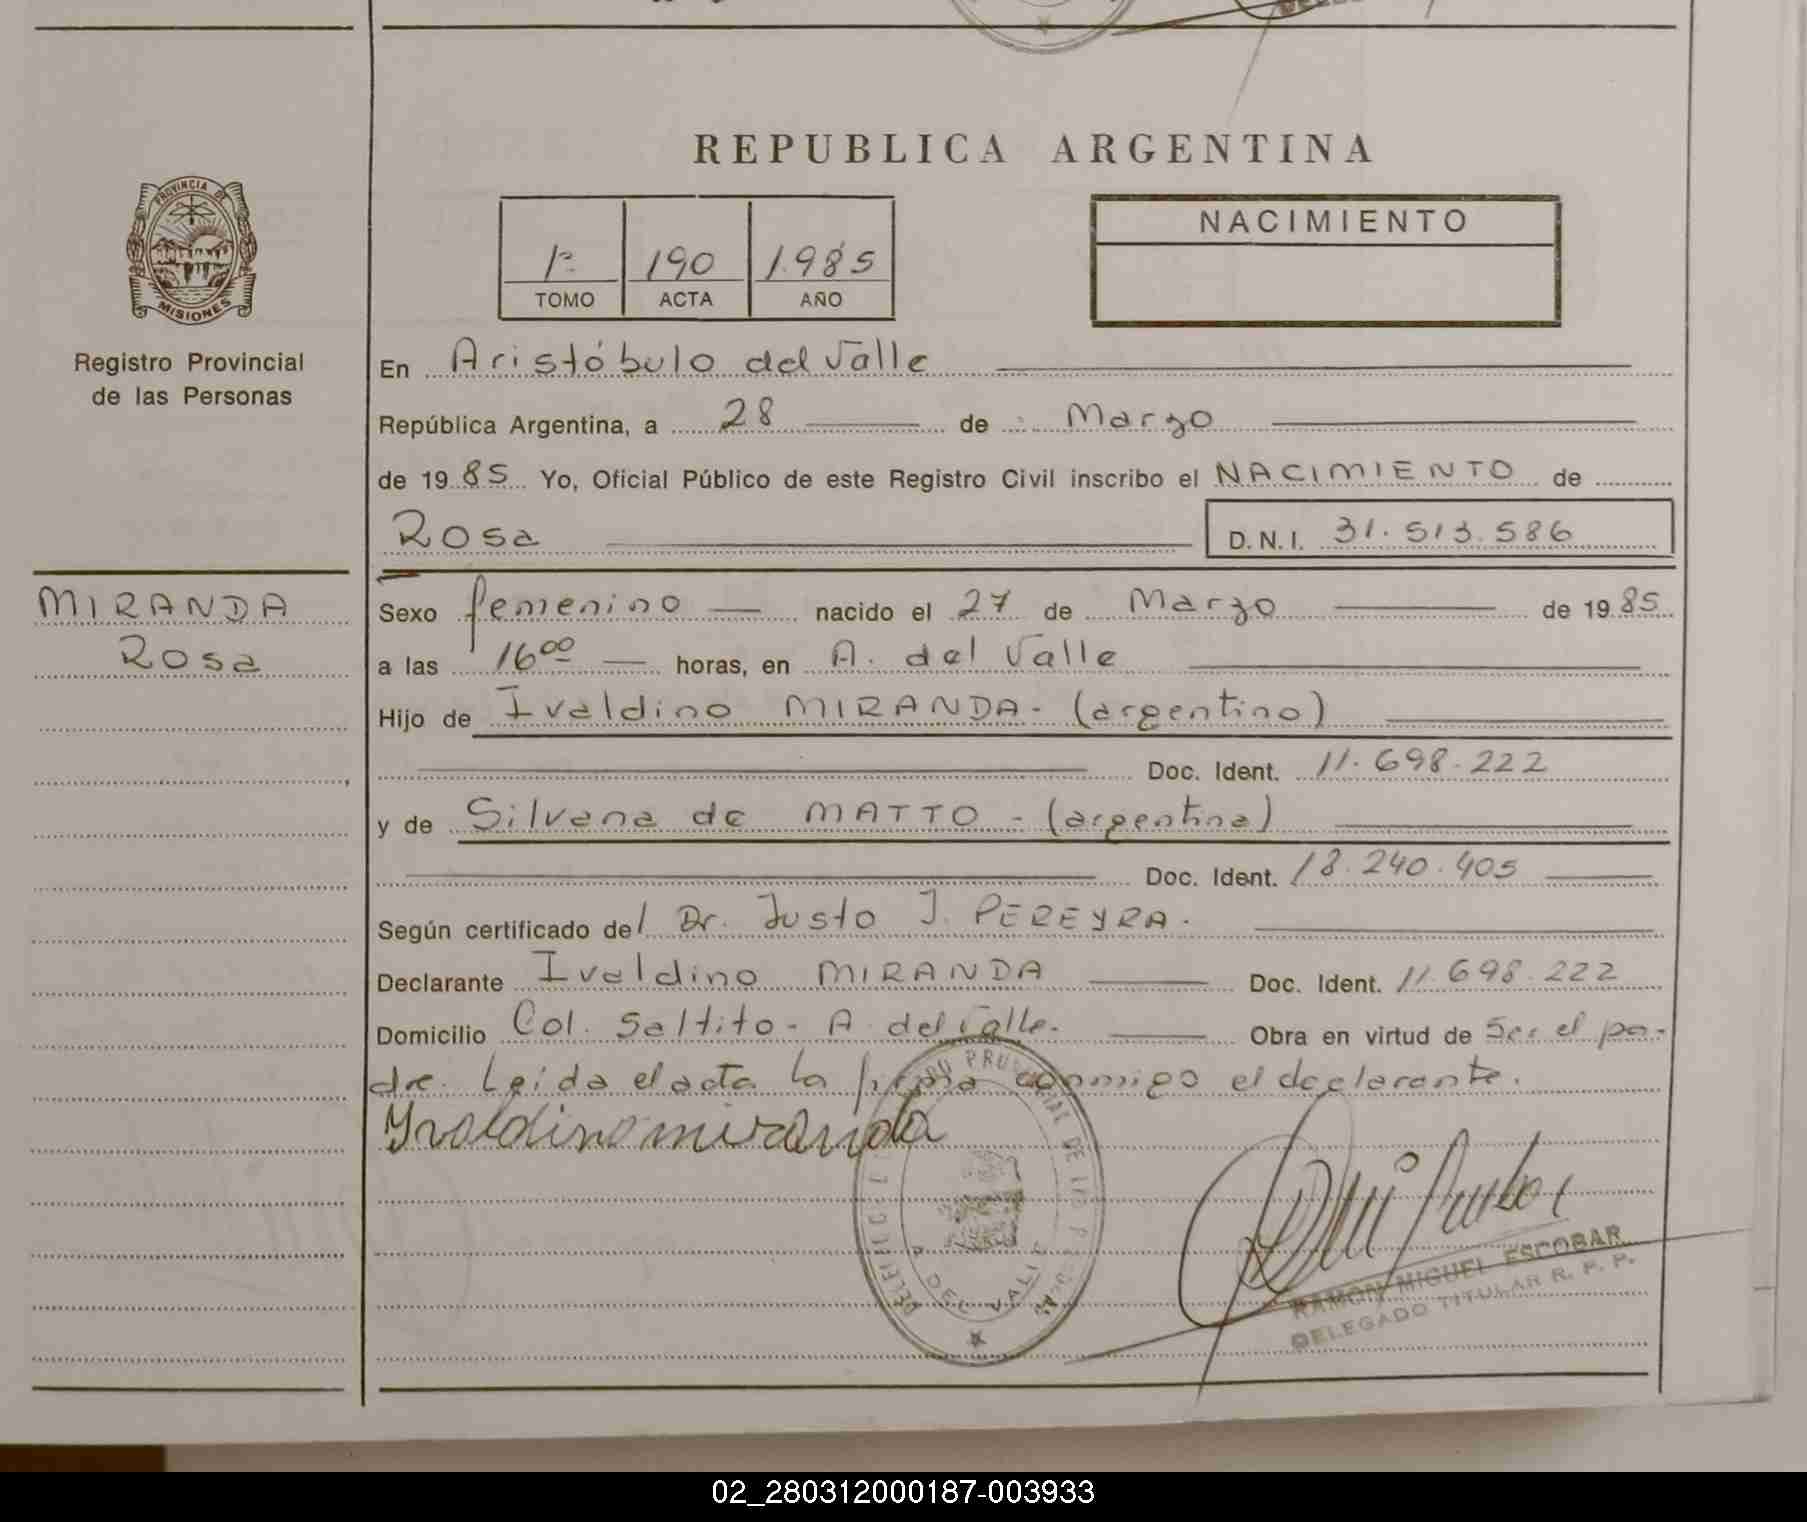 REPUBLICA ARGENTINA
PROVINCIA DE
MISIONES
Registro Provincial
de las Personas
1º 190 1985
TOMO ACTA AÑO
NACIMIENTO
En Aristóbulo del Valle
República Argentina, a 28 de Marzo
de 19 85 Yo, Oficial Público de este Registro Civil inscribo el NACIMIENTO de
Rosa D.N.I. 31.513.586
MIRANDA
Rosa
Sexo femenino nacido el 27 de Marzo de 19 85
a las 16 00 horas, en A. del Valle
Hijo de Ivaldino MIRANDA - (argentino)
Doc. Ident. 11.698.222
y de Silvana de MATTO - (argentina)
Doc. Ident. 18.240.405
Según certificado del Dr. Justo J. PEREYRA.
Declarante Ivaldino MIRANDA Doc. Ident. 11.698.222
Domicilio Col. Saltito - A. del Valle. Obra en virtud de Ser el pa-
dre. Leida el acta la firma conmigo el declarante.
Yvaldino miranda
RAMON MIGUEL ESCOBAR
DELEGADO TITULAR R. P. P.
02_280312000187-003933